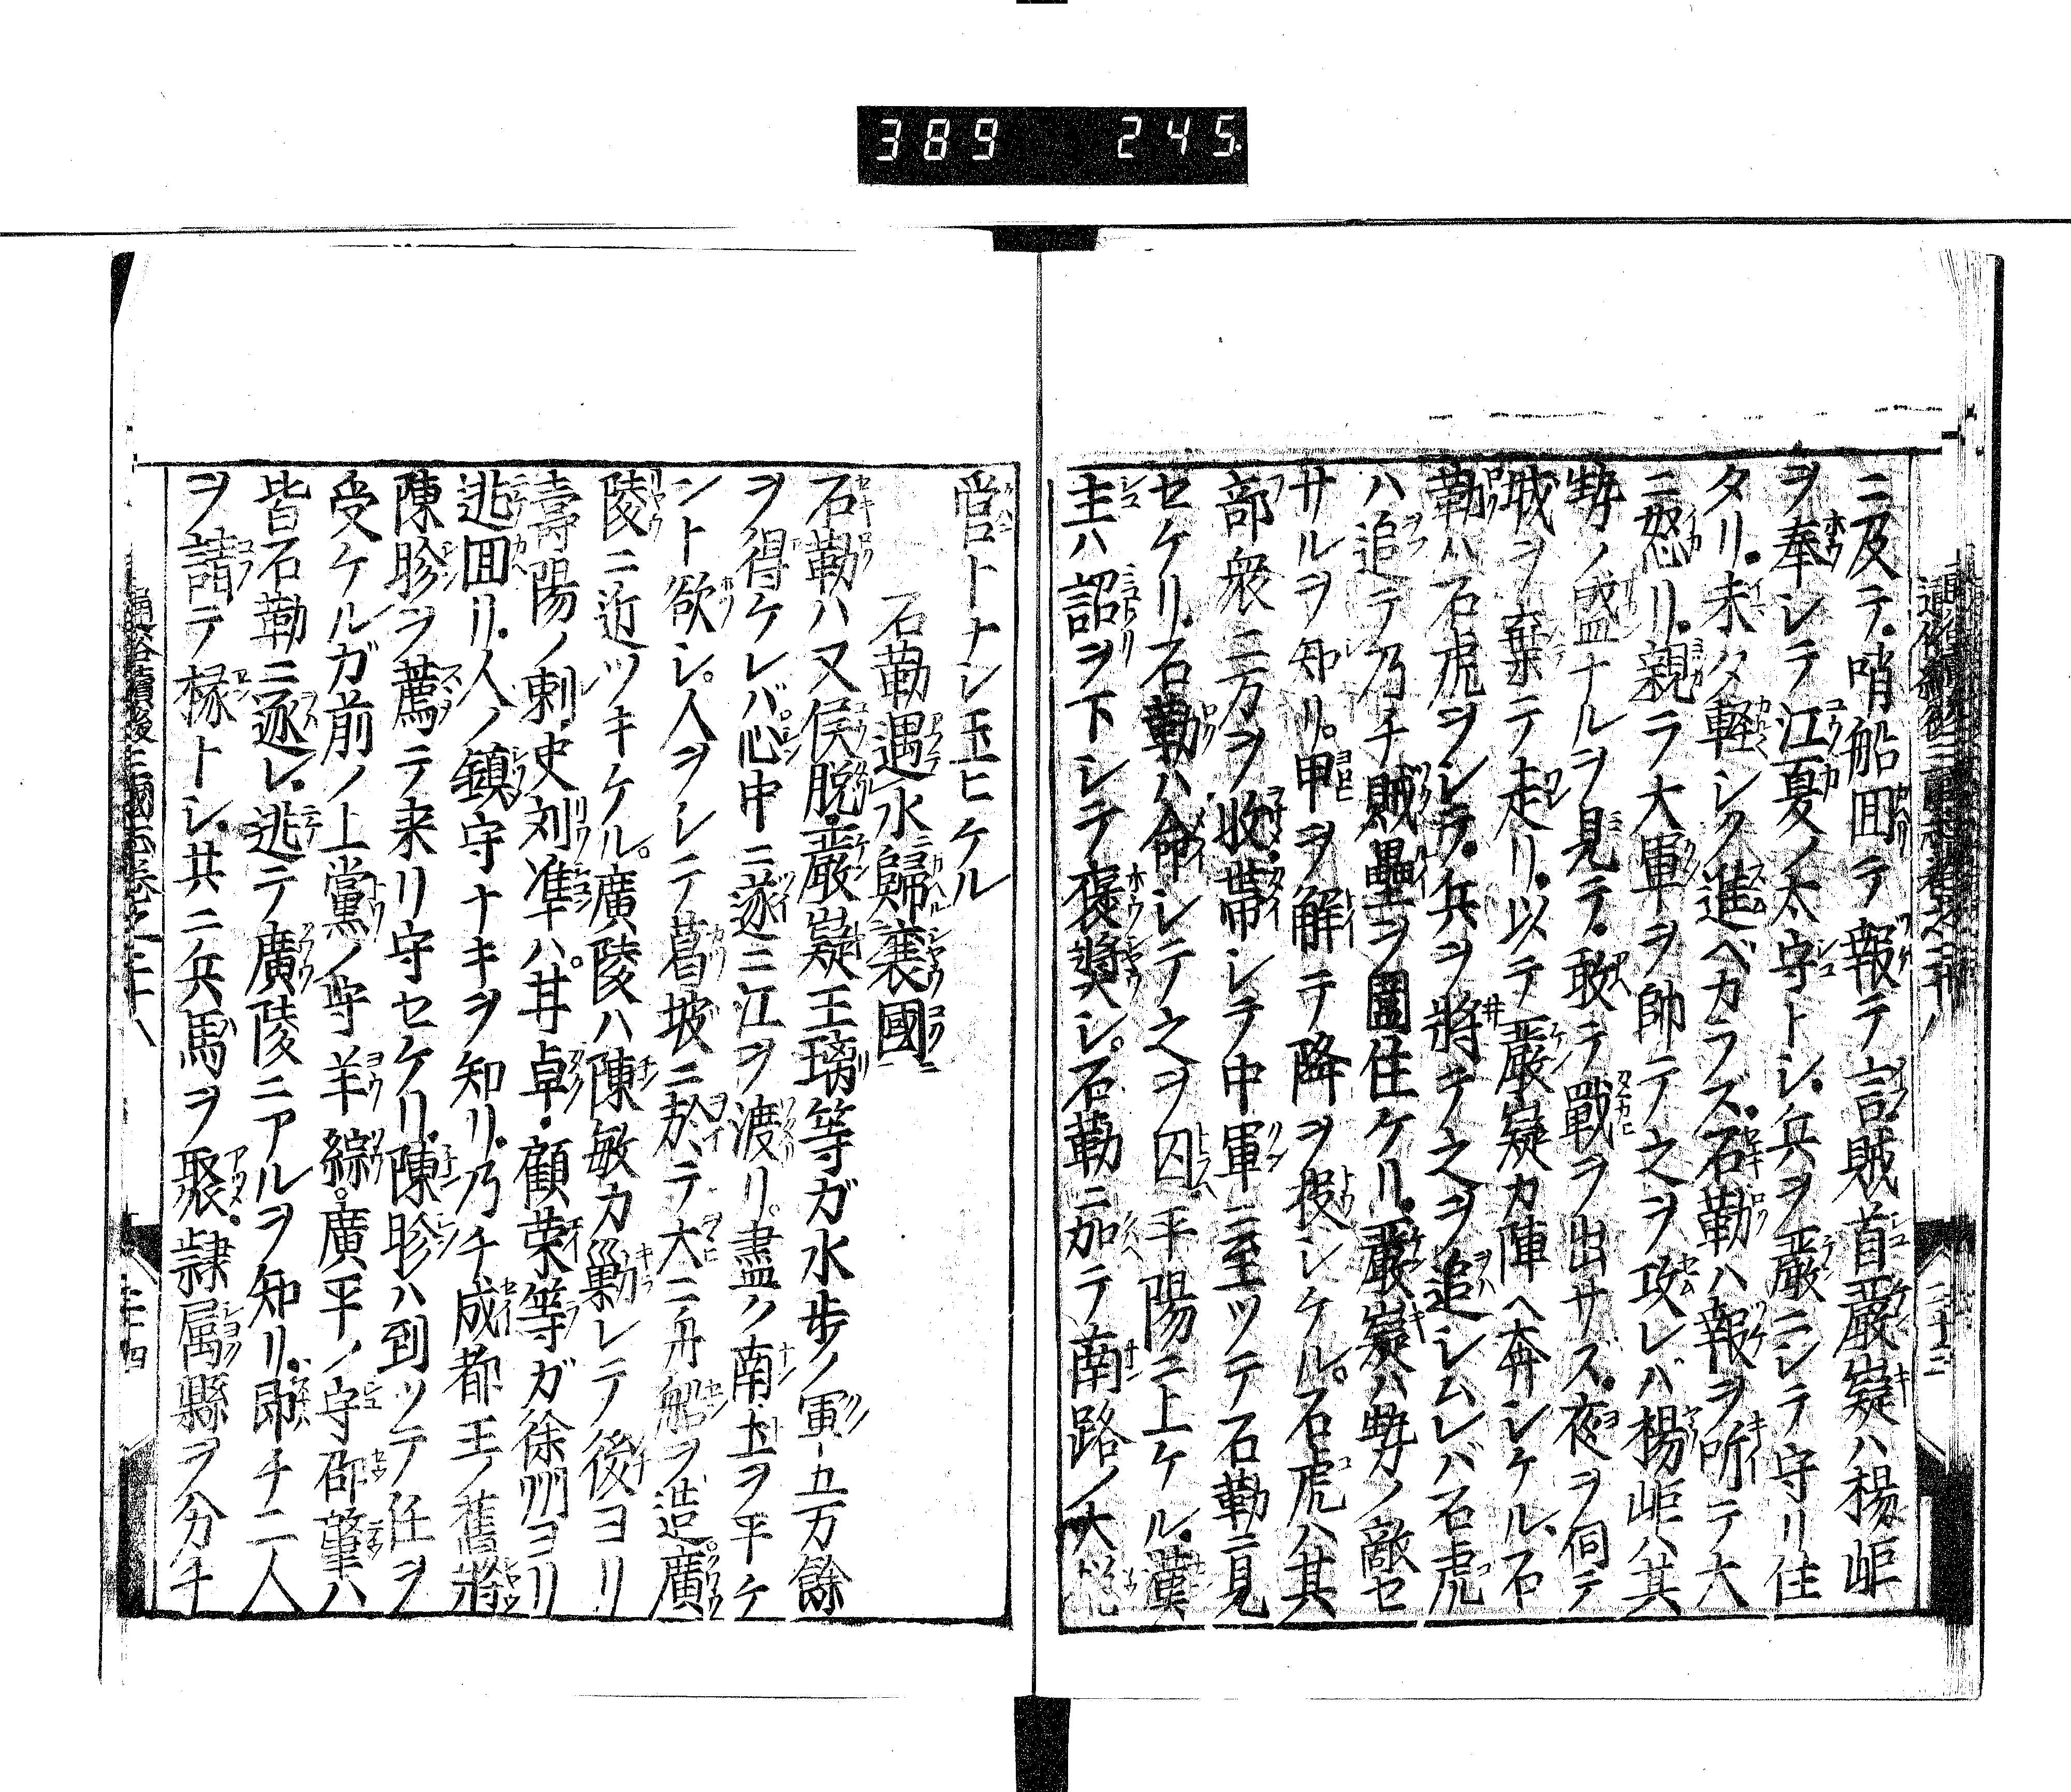 389 245
ニ及テ。哨船囬テ報テ言賊首嚴嶷ハ楊岠
ヲ奉シテ江夏ノ太守トシ。兵ヲ嚴ニシテ守リ住
タリ。未タ輕シク進ベカラズ。石勒ハ報ヲ听テ大
ニ怒リ。親ラ大軍ヲ帥テ之ヲ攻レバ楊岠ハ其
勢ノ盛ナルヲ見テ。敢テ戰ヲ出サズ。夜ヲ伺テ
城ヲ棄テ走リ。以テ嚴嶷カ陣ヘ奔シケル。石
勒ハ石虎ヲシテ。兵ヲ將テ之ヲ追シムレバ石虎
ハ追テ乃チ賊壘ヲ圍住ケリ。嚴嶷ハ勢ノ敵セ
サルヲ知リ。甲ヲ解テ降ヲ投シケル。石虎ハ其
部衆二万ヲ收帶シテ中軍ニ至ツテ石勒ニ見
セケリ。石勒ハ命シテ之ヲ囚。平陽ニ上ケル。漢
主ハ詔ヲ下シテ褒奬シ。石勒ニ加テ南路ノ大
營トナシ玉ヒケル
石勒遇水歸襄國
石勒ハ又侯脱。嚴嶷王璃等ガ水歩ノ軍五万餘
ヲ得ケレバ。心中ニ遂ニ江ヲ渡リ。盡ク南土ヲ平ケ
ント欲シ。人ヲシテ葛坡ニ於テ大ニ舟船ヲ造。廣
陵ニ近ツキケル。廣陵ハ陳敏カ巡勦シテ後ヨリ
壽陽ノ刺史刘準ハ。甘卓。顧榮等ガ徐州ヨリ
逃囬リ。人ノ鎮守ナキヲ知リ。乃チ成都王ノ舊將
陳眕ヲ薦テ来リ守セケリ。陳眕ハ到ツテ任ヲ
受ケルガ前ノ上黨ノ守羊綜。廣平ノ守邵肇ハ
皆石勒ニ逐レ。逃テ廣陵ニアルヲ知リ。即チ二人
ヲ請テ掾トシ。共ニ兵馬ヲ聚。隷属縣ヲ分チ
通俗續後三國志卷之二十八
二十四